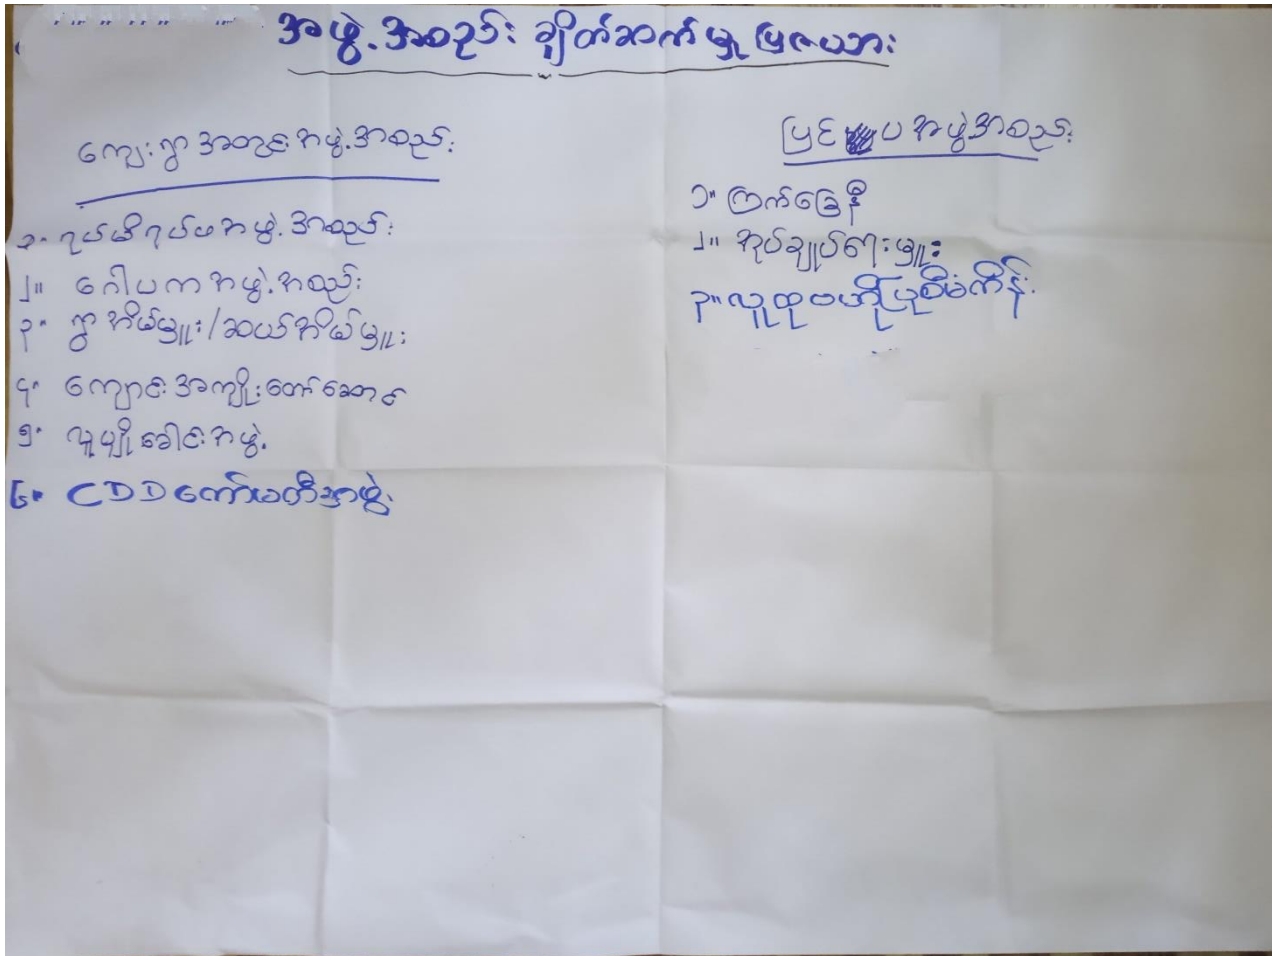 အဖွဲ့အစည်း ချိတ်ဆက်မှု ပြဇယား
ကျေးရွာအတွင်းအဖွဲ့အစည်း
၁။ ရပ်မိရပ်ဖအဖွဲ့အစည်း
၂။ ဂေါပကအဖွဲ့အစည်း
၃။ ရွာအိမ်မှူး/ဆယ်အိမ်မှူး
၄။ ကျောင်းအကျိုးတော်ဆောင်
၅။ လူပျိုခေါင်းအဖွဲ့
၆။ CDD ကော်မတီအဖွဲ့
ပြင်ပအဖွဲ့အစည်း
၁။ ကြက်ခြေနီ
၂။ အုပ်ချုပ်ရေးမှူး
၃။ လူထုဗဟိုပြုစီမံကိန်း